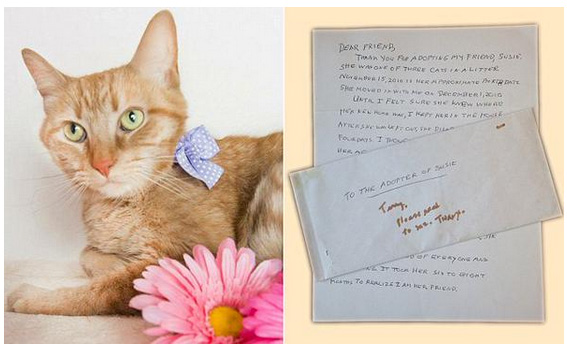 DEAR FRIEND,
THANK YOU FOR ADOPTING MY FRIEND, SUSIE.
SHE WAS ONE OF THREE CATS IN A LITTER
NOVEMBER 15, 2010 IS HER APPROXIMATE BIRTHDATE
SHE MOVED IN WITH ME ON DECEMBER 1, 2010
UNTIL I FELT SURE SHE KNEW WHERE
HER NEW HOME WAS, I KEPT HER IN THE HOUSE
AFTER SHE WAS
FOUR DAYS I
HER
TO THE ADOPTER OF SUSIE
Please read
to
OF EVERYONE AND
IT TOOK HER SIX TO EIGHT
MONTHS TO REALIZE I AM HER FRIEND.